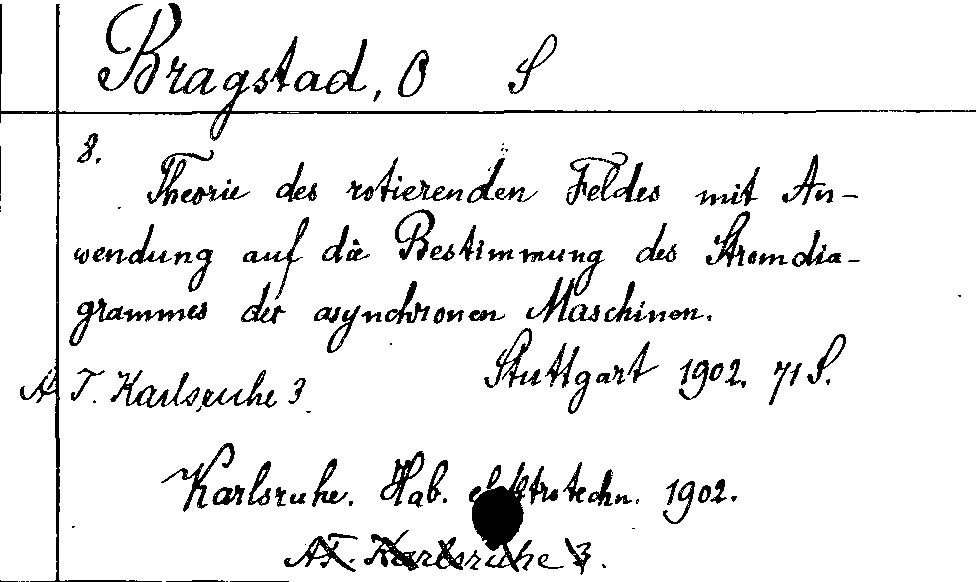 Bragstad, O S
8.
Theorie des rotierenden Feldes mit An-
wendung auf die Bestimmung des Stromdia-
grammes der asynchronen Maschinen.
Stuttgart 1902. 71 S.
A. T. Karlsruhe 3
Karlsruhe. Hab. elektrotechn. 1902.
A.T. Karlsruhe 3.